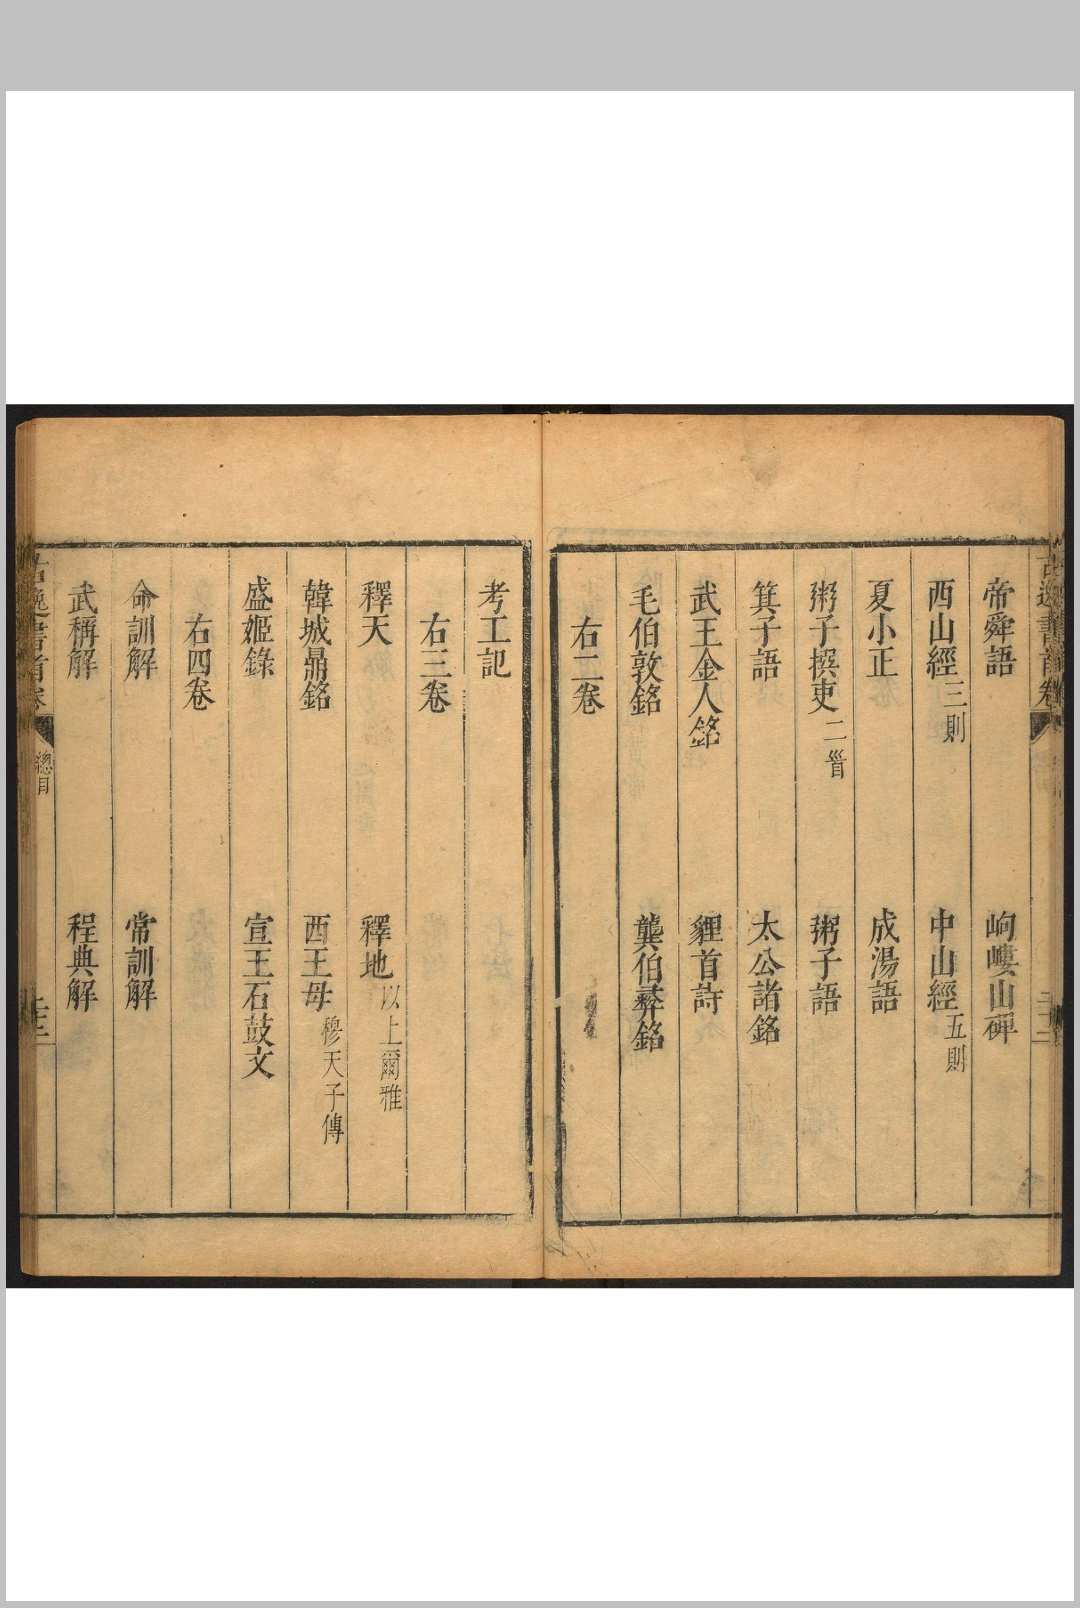 古逸書首卷
帝舜語　岣嶁山碑
西山經三則　中山經五則
夏小正　成湯語
粥子撰吏二首　粥子語
箕子語　太公諸銘
武王金人銘　貍首詩
毛伯敦銘　龔伯彝銘
右二卷
考工記
右三卷
釋天　釋地以上爾雅
韓城鼎銘　西王母穆天子傳
盛姬錄　宣王石鼓文
右四卷
命訓解　常訓解
武稱解　程典解
古逸書首卷　總目